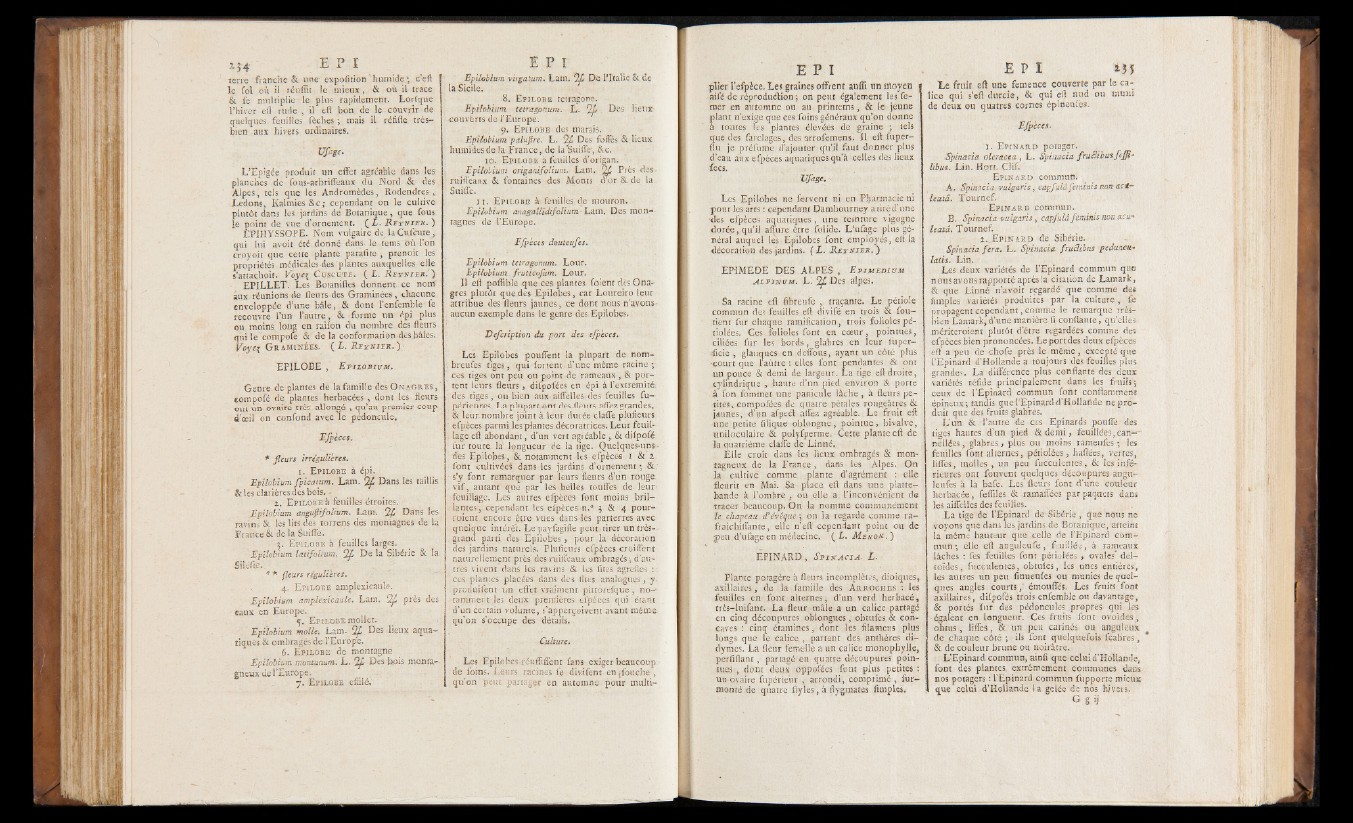 234 E P I
terre franche & une expoſition humide ; c'eſt
le ſol où il réuſſit le mieux, & où il trace
& ſe multiplie le plus rapidement. Lorſque
l'hiver eſt rude , il eſt bon de le couvrir de
quelques feuilles ſèches ; mais il réſiſte très-
bien aux hivers ordinaires.
Uſage.
L'Epigée produit un effet agréable dans les
planches de ſous-arbriſſeaux du Nord & des
Alpes, tels que les Andromèdes, Rodendres ,
Ledons, Kalmies &c ; cependant on le cultive
plutôt dans les jardins de Botanique, que ſous
le point de vue d'ornement. ( L. REYNIER. )
EPIHYSSOPE. Nom vulgaire de la Cuſcute ,
qui lui avoit été donné dans le tems où l'on
croyoit que cette plante paraſite , prenoit les
propriétés médicales des plantes auxquelles elle
s'attachoit. Voyez CUSCUTE. ( L. REYNIER. )
EPILLET. Les Botaniſtes donnent ce nom
aux réunions de fleurs des Graminées, chacune
enveloppée d'une bâle, & dont l'enſemble ſe
recouvre l'un l'autre, & forme un épi plus
ou moins long en raiſon du nombre des fleurs
qui le compoſe & de la conformation des bâles.
Voyez GRAMINÉES. ( L. REYNIER. )
EPILOBE , EPILOBIUM.
Genre de plantes de la famille des ONAGRES,
compoſé de plantes herbacées , dont les fleurs
ont un ovaire très-allongé , qu'au premier coup
d'œil on confond avec le pédoncule.
Eſpèces.
* fleurs irrégulières.
1. EPILOBE à épi.
Epilobium ſpicatum. Lam. ♃ Dans les taillis
& les clarières des bois.
2. EPILOBE à feuilles étroites.
Epilobium anguſtifolium. Lam. ♃ Dans les
ravins & les lits des torrens des montagnes de la
France & de la Suiſſe.
3. EPILOBE à feuilles larges.
Epilobium latifolium. ♃ De la Sibérie & la
Siléſie.
** fleurs régulières.
4. EPILOBE amplexicaule.
Epilobium amplexicaule. Lam. ♃ près des
eaux en Europe.
5. EPILOBE mollet.
Epilobium molle. Lam. ♃ Des lieux aqua-
tiques & ombragés de l'Europe.
6. EPILOBE de montagne
Epilobium montanum. L. ♃ Des bois monta-
gneux de l'Europe.
7. EPILOBE effilé.
E P I
Epilobium virgatum. Lam. ♃ De l'Italie & de
la Sicile.
8. EPILOBE tetragone.
Epilobium tetragonum. L. ♃ Des lieux
couverts de l'Europe.
9. EPILOBE des marais.
Epilobium paluſtre. L. ♃ Des foſſés & lieux
humides de la France, de la Suiſſe, &c.
10. EPILOBE à feuilles d'origan.
Epilobium origanifolium. Lam. ♃ Près des
ruiſſeaux & fontaines des Monts d'or & de la
Suiſſe.
11. EPILOBE à feuilles de mouron.
Epilobium anagallidifolium Lam. Des mon-
tagnes de l'Europe.
Eſpèces douteuſes.
Epilobium tetragonum. Lour.
Epilobium fruticoſum. Lour.
Il eſt poſſible que ces plantes ſoient des Ona-
gres plutôt que des Epilobes, car Loureiro leur
attribue des fleurs jaunes, ce dont nous n'avons
aucun exemple dans le genre des Epilobes.
Deſcription du port des eſpèces.
Les Epilobes pouſſent la plupart de nom-
breuſes tiges, qui ſortent d'une même racine ;
ces tiges ont peu ou point de rameaux, & por-
tent leurs fleurs , diſpoſées en épi à l'extrémité
des tiges , ou bien aux aiſſelles des feuilles ſu-
périeures. La plupart ont des fleurs aſſez grandes,
& leur nombre joint à leur durée claſſe pluſieurs
eſpèces parmi les plantes décoratrices. Leur feuil-
lage eſt abondant, d'un vert agréable , & diſpoſé
ſur toute la longueur de la tige. Quelques-uns
des Epilobes, & notamment les eſpèces 1 & 2
ſont cultivées dans les jardins d'ornement ; &
s'y font remarquer par leurs fleurs d'un rouge
vif, autant que par les belles touffes de leur
feuillage. Les autres eſpèces ſont moins bril-
lantes, cependant les eſpèces n.° 3 & 4 pour-
roient encore être vues dans les parterres avec
quelque intérêt. Le payſagiſte peut tirer un très-
grand parti des Epilobes , pour la décoration
des jardins naturels. Pluſieurs eſpèces croiſſent
naturellement près des ruiſſeaux ombragés, d'au-
tres vivent dans les ravins & les ſites agreſtes :
ces plantes placées dans des ſites analogues, y
produiſent un effet vraiment pittoreſque, no-
tamment les deux premières eſpèces qui étant
d'un certain volume, s'apperçoivent avant même
qu'on s'occupe des détails.
Culture.
Les Epilobes réuſſiſſent ſans exiger beaucoup
de ſoins. Leurs racines ſe diviſent en ſouche ,
qu'on peut partager en automne pour multi-
E P I
plier l'eſpèce. Les graines offrent auſſi un moyen
aiſé de réproduction ; on peut également les ſe-
mer en automne ou au printems, & le jeune
plant n'exige que ces ſoins généraux qu'on donne
à toutes les plantes élevées de graine ; tels
que des ſarclages, des arroſemens. Il eſt ſuper-
flu je préſume d'ajouter qu'il faut donner plus
d'eau aux eſpèces aquatiques qu'à celles des lieux
ſecs.
Uſage.
Les Epilobes ne ſervent ni en Pharmacie ni
pour les arts : cependant Dambourney a tiré d'une
des eſpèces aquatiques , une teinture vigogne
dorée, qu'il aſſure être ſolide. L'uſage plus gé-
néral auquel les Epilobes ſont employés, eſt la
décoration des jardins. ( L. REYNIER. )
EPIMEDE DES ALPES , EPIMEDIUM
ALPINUM. L. ♃ Des alpes.
Sa racine eſt fibreuſe , traçante. Le pétiole
commun des feuilles eſt diviſé en trois & ſou-
tient ſur chaque ramification, trois folioles pé-
tiolées. Ces folioles ſont en cœur, pointues,
ciliées ſur les bords, glabres en leur ſuper-
ficie , glauques en deſſous, ayant un côté plus
court que l'autre : elles ſont pendantes & ont
un pouce & demi de largeur. La tige eſt droite,
cylindrique , haute d'un pied environ & porte
à ſon ſommet une panicule lâche, à fleurs pe-
tites, compoſées de quatre pétales rougeâtres &
jaunes, d'un aſpect aſſez agréable. Le fruit eſt
une petite ſilique oblongue, pointue, bivalve,
uniloculaire & polyſperme. Cette plante eſt de
la quatrième claſſe de Linné.
Elle croît dans les lieux ombragés & mon-
tagneux de la France , dans les Alpes. On
la cultive comme plante d'agrément : elle
fleurit en Mai. Sa place eſt dans une platte-
bande à l'ombre , où elle a l'inconvénient de
tracer beaucoup. On la nomme communément
le chapeau d'évêque ; on la regarde comme ra-
fraîchiſſante, elle n'eſt cependant point ou de
peu d'uſage en médecine. ( L. MENON. )
EPINARD, SPINACIA L.
Plante potagère à fleurs incomplètes, dioïques,
axillaires, de la famille des ARROCHES : les
feuilles en ſont alternes, d'un verd herbacé,
très-luiſant. La fleur mâle a un calice partagé
en cinq découpures oblongues, obtuſes & con-
caves : cinq étamines, dont les filamens plus
longs que le calice , portent des anthères di-
dymes. La fleur femelle a un calice monophylle,
perſiſtant , partagé en quatre découpures poin-
tues, dont deux oppoſées ſont plus petites :
un ovaire ſupérieur , arrondi, comprimé , ſur-
monté de quatre ſtyles, à ſtygmates ſimples.
E P I 235
Le fruit eſt une ſemence couverte par le ca-
lice qui s'eſt durcie, & qui eſt nud ou muni
de deux ou quatres cornes épineuſes.
Eſpèces.
1. EPINARD potager.
Spinacia oleracea, L. Spinacia fructibus ſeſſi-
libus. Lin. Hort. Clif.
EPINARD commun.
A. Spinacia vulgaris, capſulâ ſeminis non acu-
leatâ. Tournef.
EPINARD commun.
B. Spinacia vulgaris, capſulâ ſeminis non acu-
leatâ. Tournef.
2. EPINARD de Sibérie.
Spinacia fera. L. Spinacia fructibus peduncu-
latis. Lin.
Les deux variétés de l'Epinard commun que
nous avons rapporté après la citation de Lamark,
& que Linné n'avoit regardé que comme des
ſimples variétés produites par la culture, ſe
propagent cependant, comme le remarque très-
bien Lamark, d'une manière ſi conſtante, qu'elles
mériteroient plutôt d'être regardées comme des
eſpèces bien prononcées. Le port des deux eſpèces
eſt à peu de choſe près le même , excepté que
l'Epinard d'Hollande a toujours des feuilles plus
grandes. La différence plus conſtante des deux
variétés réſide principalement dans les fruits ;
ceux de l'Epinard commun ſont conſtamment
épineux ; tandis que l'Epinard d'Hollande ne pro-
duit que des fruits glabres.
L'un & l'autre de ces Epinards pouſſe des
tiges hautes d'un pied & demi, feuillées, can-
nelées, glabres, plus ou moins rameuſes ; les
feuilles ſont alternes, pétiolées, haſtées, vertes,
liſſes, molles , un peu ſucculentes, & les infé-
rieures ont ſouvent quelques découpures angu-
leuſes à la baſe. Les fleurs ſont d'une couleur
herbacée, ſeſſiles & ramaſſées par paquets dans
les aiſſelles des feuilles.
La tige de l'Epinard de Sibérie, que nous ne
voyons que dans les jardins de Botanique, atteint
la même hauteur que celle de l'Epinard com-
mun ; elle eſt anguleuſe, feuillée, à rameaux
lâches : ſes feuilles ſont pétiolées , ovales del-
toïdes, ſucculentes, obtuſes, les unes entières,
les autres un peu ſinueuſes ou munies de quel-
ques angles courts, émouſſés. Les fruits ſont
axillaires, diſpoſés trois enſemble ou davantage,
& portés ſur des pédoncules propres qui les
égalent en longueur. Ces fruits ſont ovoïdes,
obtus, liſſes, & un peu carinés ou anguleux
de chaque côté ; ils ſont quelquefois ſcabres,
& de couleur brune ou noirâtre.
L'Epinard commun, ainſi que celui d'Hollande,
ſont des plantes extrêmement communes dans
nos potagers : l'Epinard commun ſupporte mieux
que celui d'Hollande la gelée de nos hivers.
G g ij